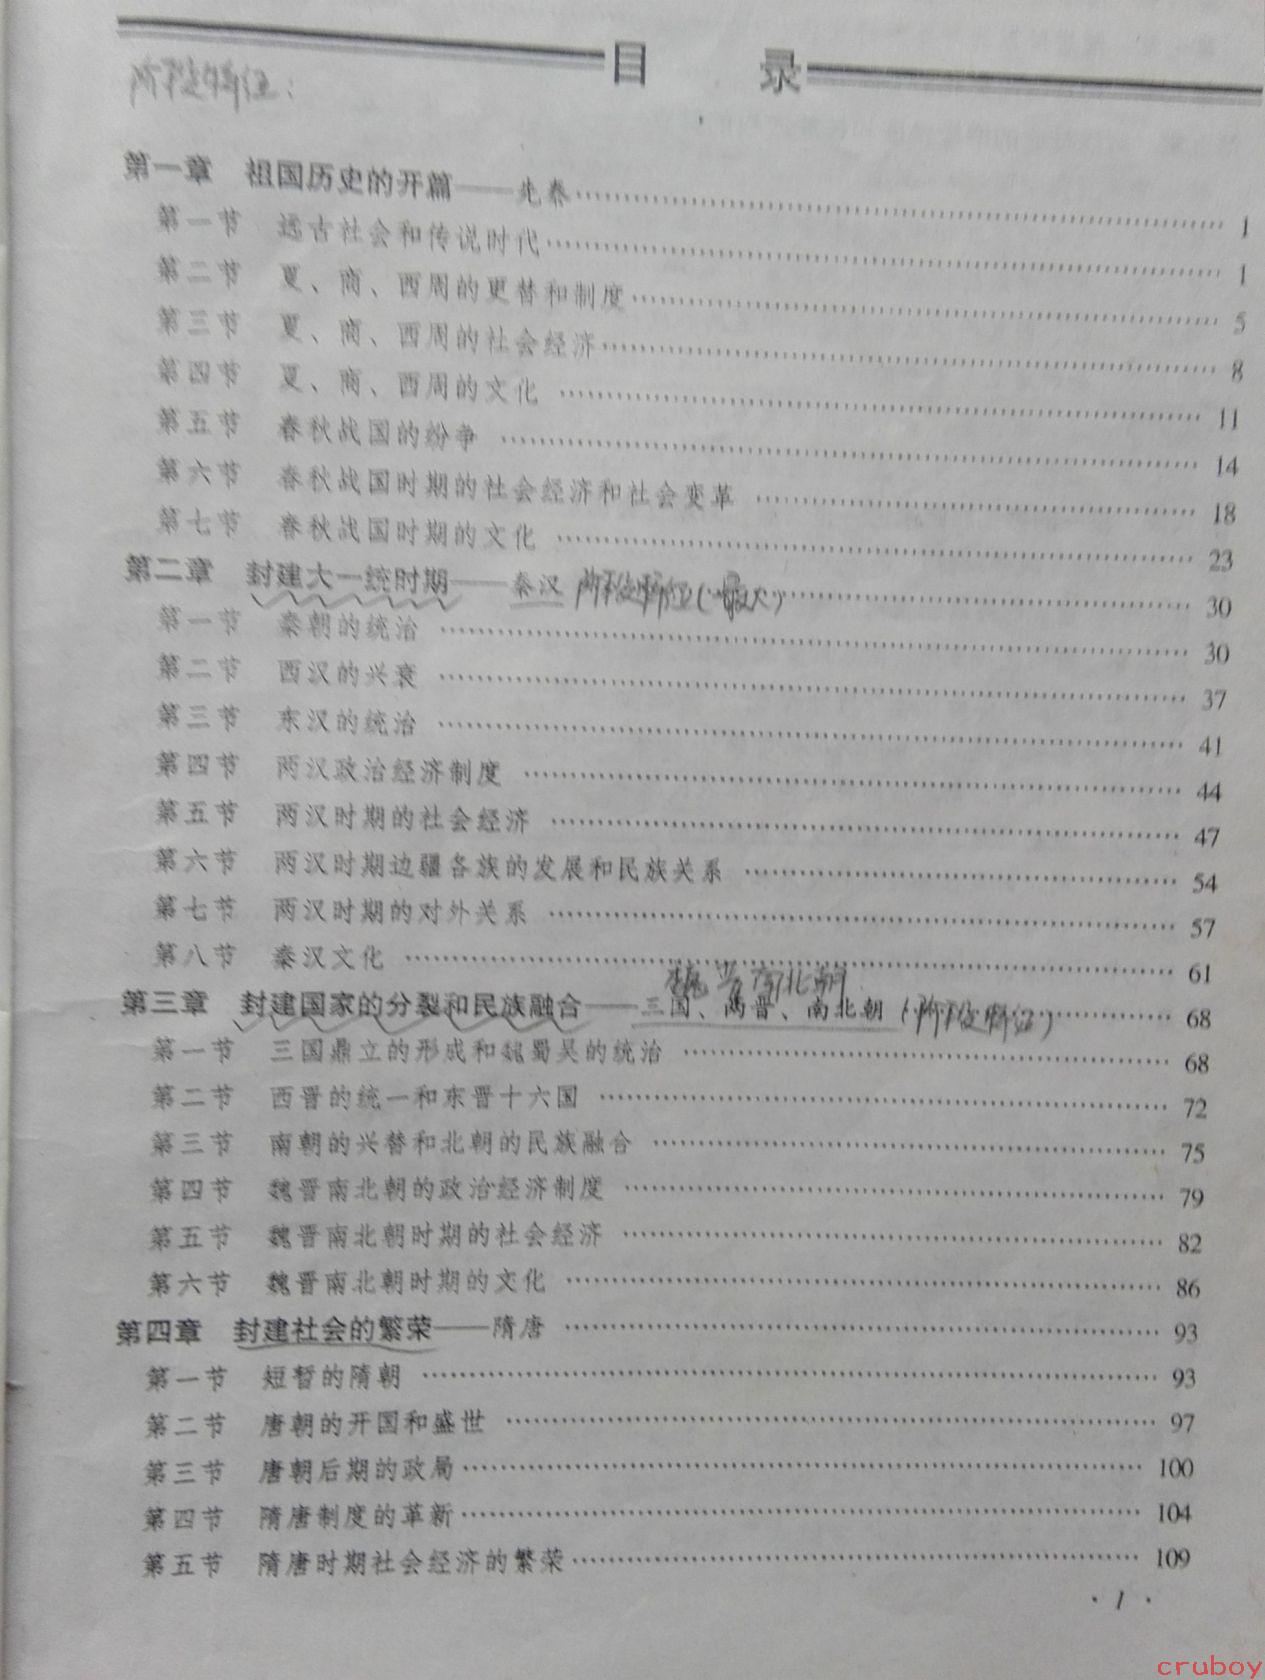 目 录
阶段特征：
第一章 祖国历史的开篇——先秦…… 1
第一节 远古社会和传说时代…… 1
第二节 夏、商、西周的更替和制度…… 5
第三节 夏、商、西周的社会经济…… 8
第四节 夏、商、西周的文化…… 11
第五节 春秋战国的纷争…… 14
第六节 春秋战国时期的社会经济和社会变革…… 18
第七节 春秋战国时期的文化…… 23
第二章 封建大一统时期——秦汉 阶段特征…… 30
第一节 秦朝的统治…… 30
第二节 西汉的兴衰…… 37
第三节 东汉的统治…… 41
第四节 两汉政治经济制度…… 44
第五节 两汉时期的社会经济…… 47
第六节 两汉时期边疆各族的发展和民族关系…… 54
第七节 两汉时期的对外关系…… 57
第八节 秦汉文化…… 61
魏晋南北朝
第三章 封建国家的分裂和民族融合——三国、两晋、南北朝（阶段特征）…… 68
第一节 三国鼎立的形成和魏蜀吴的统治…… 68
第二节 西晋的统一和东晋十六国…… 72
第三节 南朝的兴替和北朝的民族融合…… 75
第四节 魏晋南北朝的政治经济制度…… 79
第五节 魏晋南北朝时期的社会经济…… 82
第六节 魏晋南北朝时期的文化…… 86
第四章 封建社会的繁荣——隋唐…… 93
第一节 短暂的隋朝…… 93
第二节 唐朝的开国和盛世…… 97
第三节 唐朝后期的政局…… 100
第四节 隋唐制度的革新…… 104
第五节 隋唐时期社会经济的繁荣…… 109
·1·
cruboy